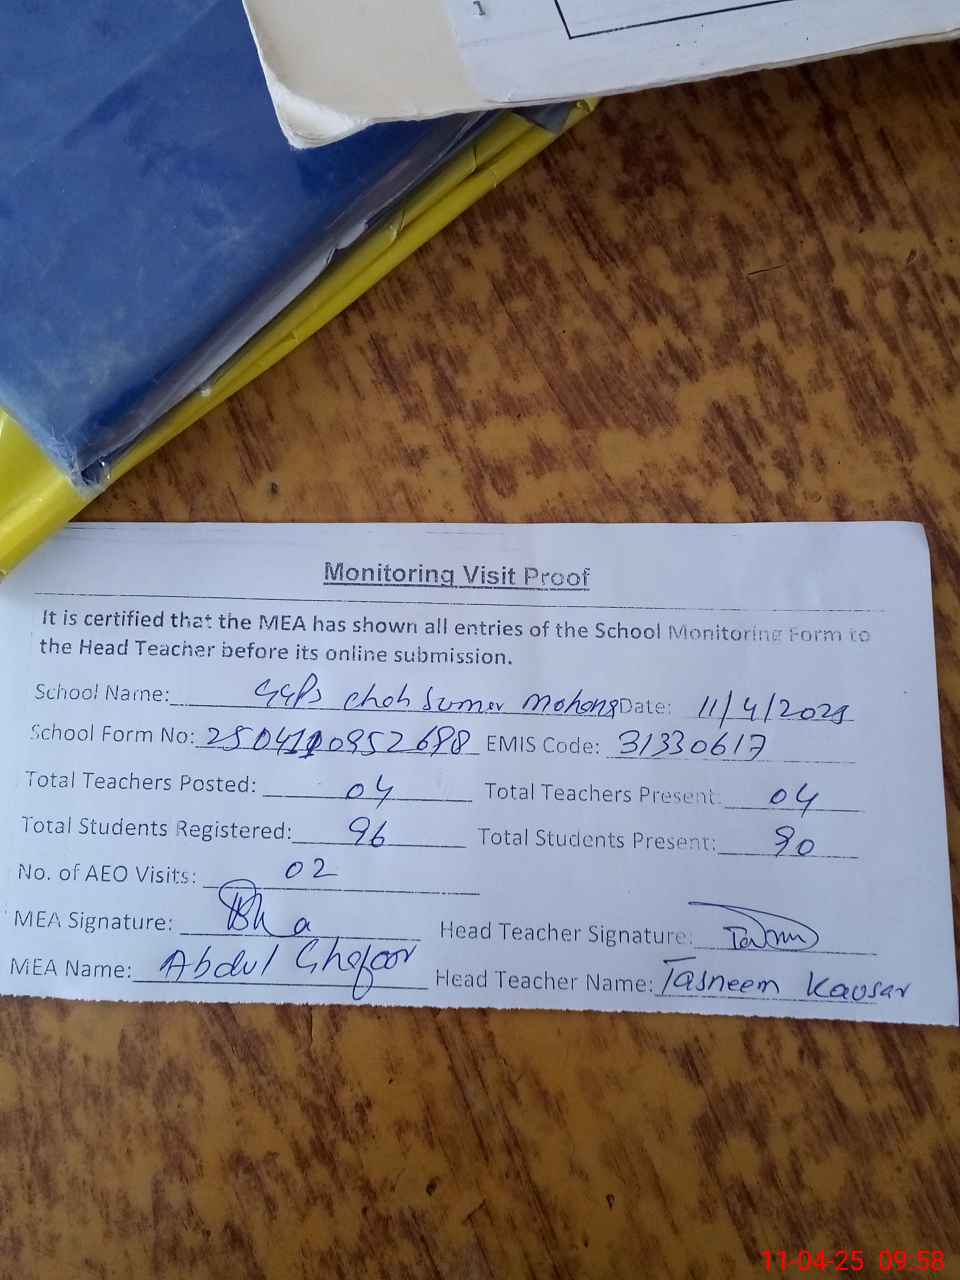 1
Monitoring Visit Proof
It is certified that the MEA has shown all entries of the School Monitoring Form to
the Head Teacher before its online submission.
School Name: GGPS Choh Sumer Mohong Date: 11/4/2025
School Form No: EMIS Code: 31330617
Total Teachers Posted: 04 Total Teachers Present: 04
Total Students Registered: 96 Total Students Present: 90
No. of AEO Visits: 02
MEA Signature: Head Teacher Signature:
MEA Name: Abdul Ghafoor Head Teacher Name: Tasneem Kausar
11-04-25 09:58